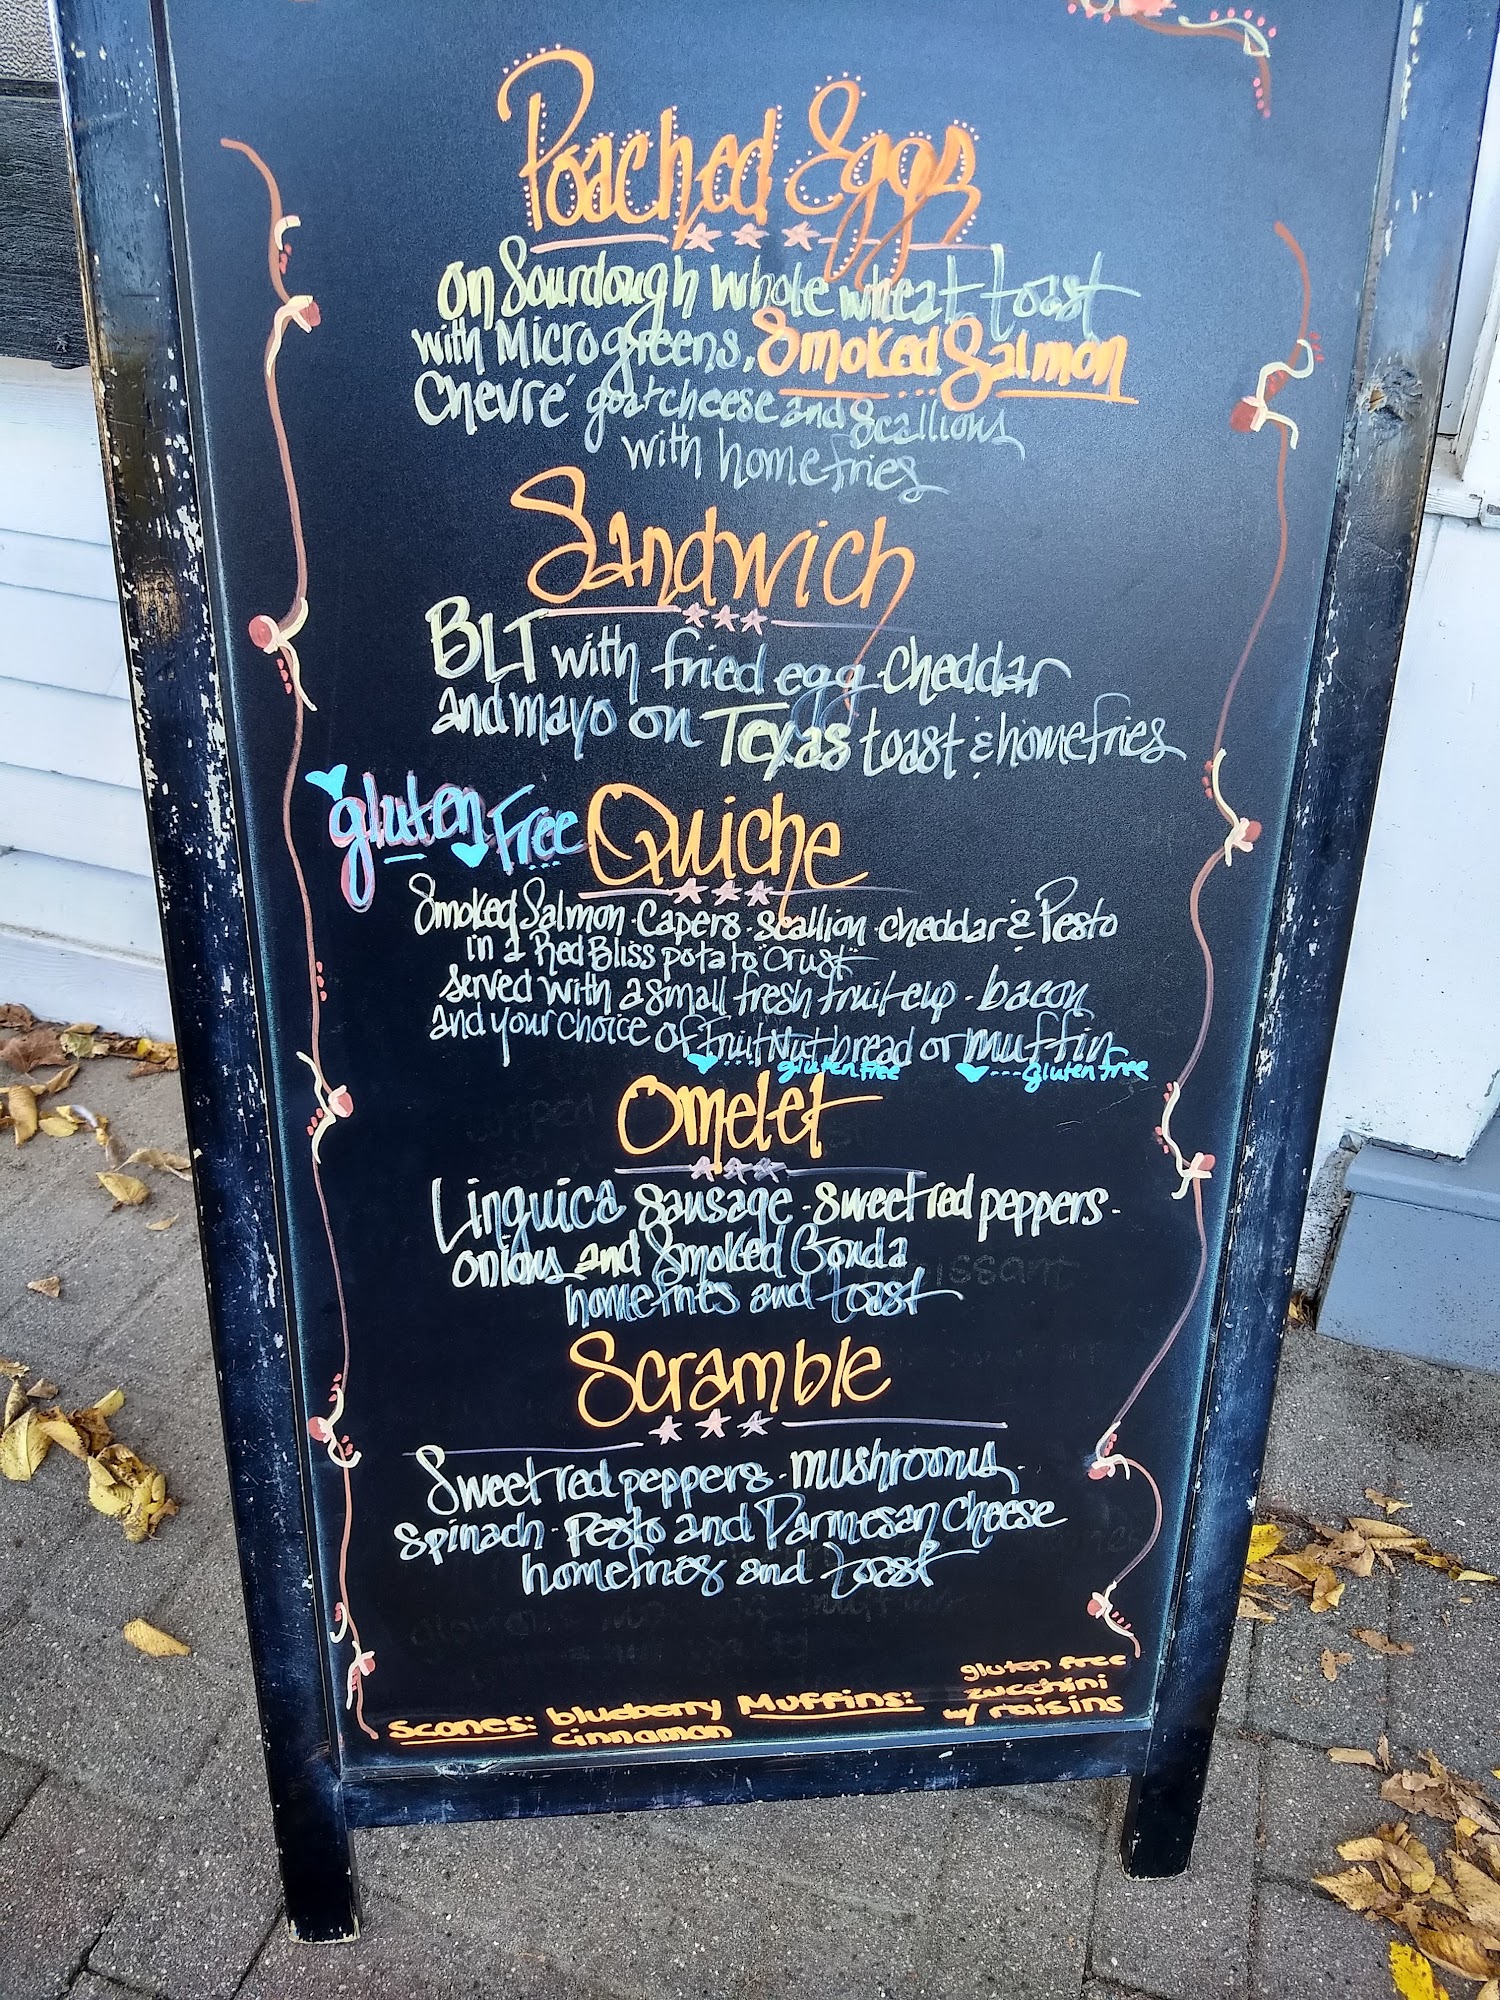 Poached Eggs
on Sourdough whole wheat toast
with Microgreens, Smoked Salmon
Chevré goat cheese and scallions
with homefries
Sandwich
BLT with fried egg · cheddar
and mayo on Texas toast & homefries
gluten free Quiche
Smoked Salmon · Capers · scallion · cheddar & Pesto
in a Red Bliss potato "crust"
served with a small fresh fruit cup · bacon
and your choice of Fruit Nut bread or muffin
gluten free gluten free
Omelet
Linguica sausage · sweet red peppers ·
onions and Smoked Gouda
homefries and toast
Scramble
Sweet red peppers · mushrooms ·
spinach · pesto and Parmesan cheese
homefries and toast
Scones: blueberry Muffins: gluten free
cinnamon zucchini
w/ raisins